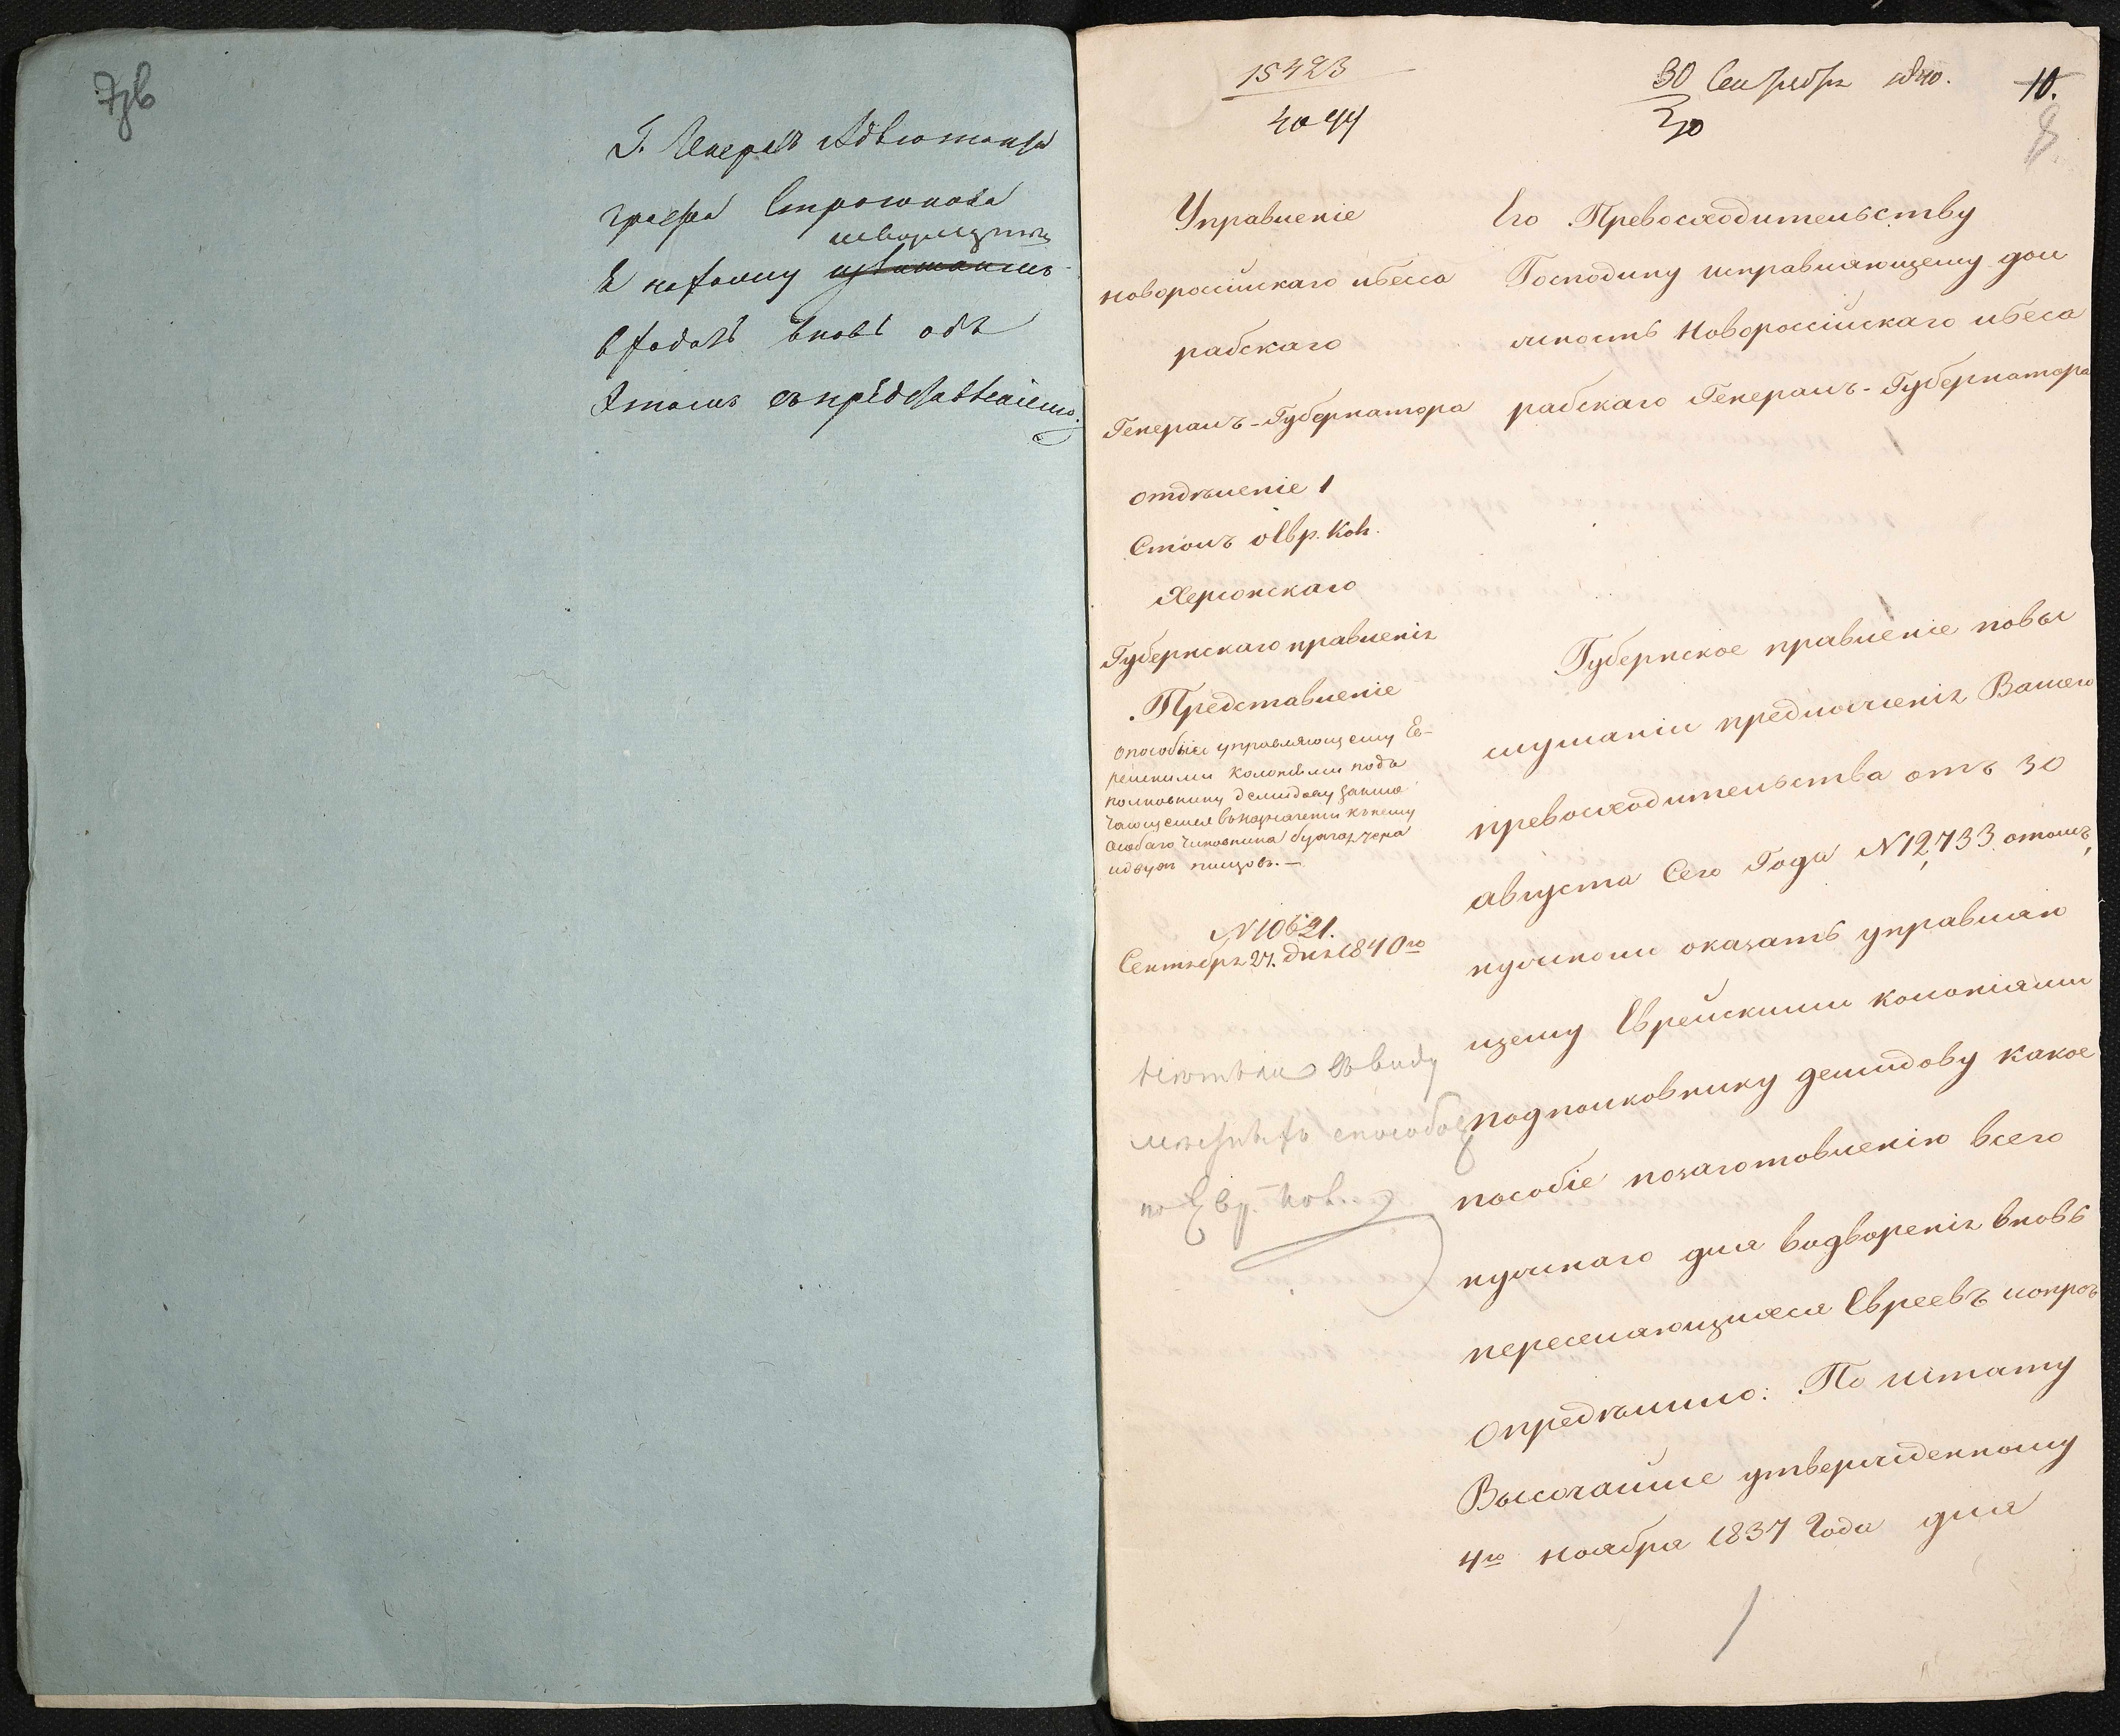 Г. Генералъ Адъютанта
графа Строгонова
къ которому
входатъ вновь объ
этомъ съ представленіемъ.
15423
4044
30 Сентября 1840.
30
10.
8
Управленіе
новороссійскаго ибесса
рабскаго
Генералъ-Губернатора
отдѣленіе 1
Столъ Евр. Кол.
Херсонскаго
Губернскаго правленія
Представленіе
опособіи управляющему Ев-
рейскими колоніями подъ
полковнику демидову заклю
чающемся въназначеніи кънему
особаго чиновника бухгалтера
идвухъ писцовъ.—
N 10621.
Сентября 27. дня 1840го
въвиду
способовъ
по Евр. Кол.
Его Превосходительству
Господину исправляющему дол
жность Новороссійскаго ибеса
рабскаго Генералъ-Губернатора
Губернское правленіе повы
слушаніи предложенія Вашего
превосходительства отъ 30
августа Сего Года N 12,733 отомъ,
нужноли оказать управляю
щему Еврейскими колоніями
подполковнику демидову какое
пособіе позаготовленію всего
нужнаго для водворенія вновь
переселяющихся Евреевъ ипроч
Опредѣлило: По штату
Высочайше утвержденному
4го ноября 1837 Года для